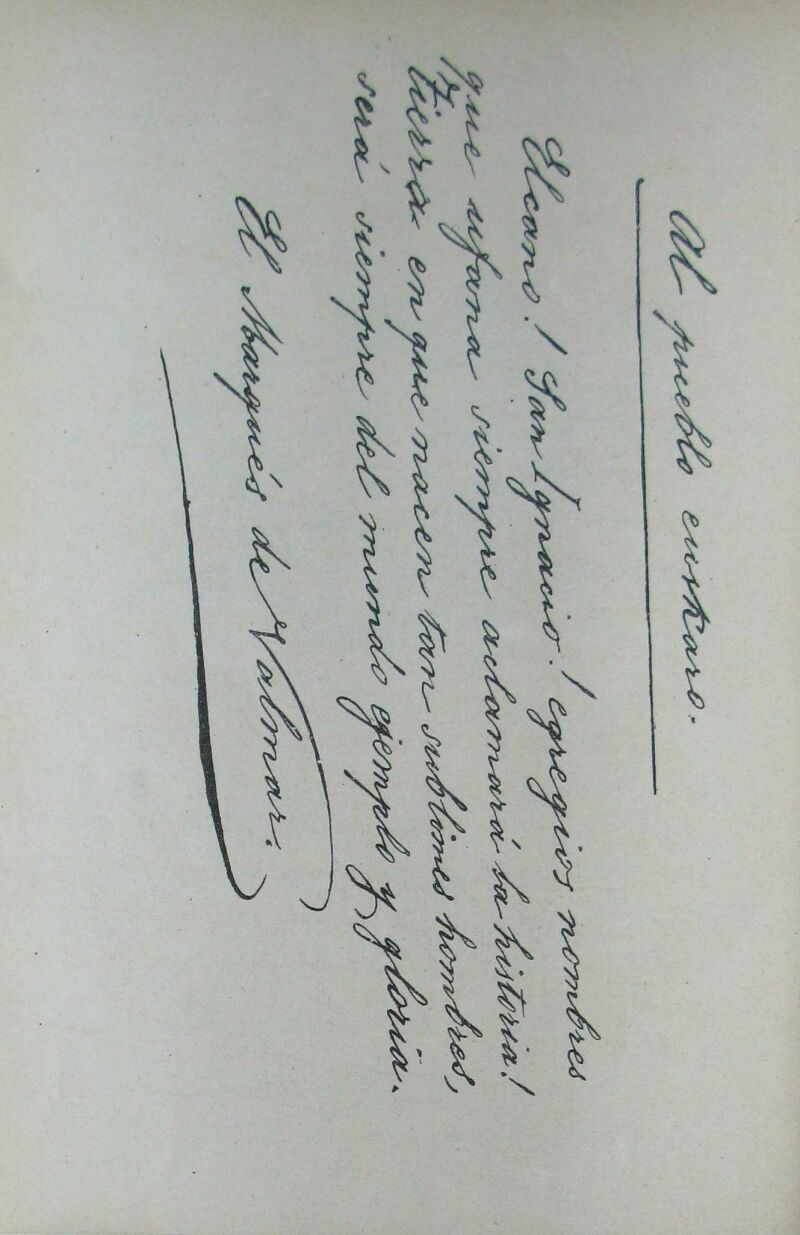 Al pueblo euskaro.
Elcano! San Ignacio! egregios nombres
que ufana siempre aclamará la historia!
Tierra en que nacen tan sublimes hombres,
será siempre del mundo ejemplo y gloria.
El Marqués de Valmar.